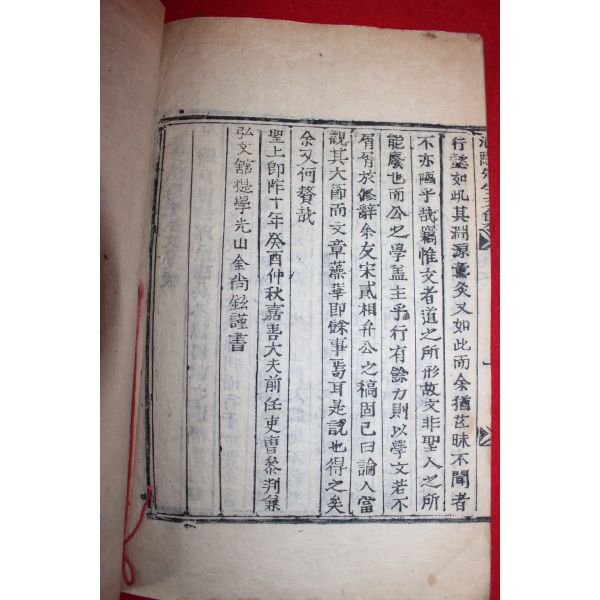 行懿如此其淵源薰灸又如此而余猶茫昧不聞者
不亦陋乎哉竊惟文者道之所形故文非聖人之所
能廢也而公之學盖主乎行有餘力則以學文若不
屑屑於修辭余友宋貳相弁公之稿固已曰論人當
觀其大節而文章藻華即餘事焉耳是說也得之矣
余又何贅哉
聖上卽阼十年癸酉仲秋嘉善大夫前任吏曹叅判兼
弘文舘提學光山金尙鉉謹書